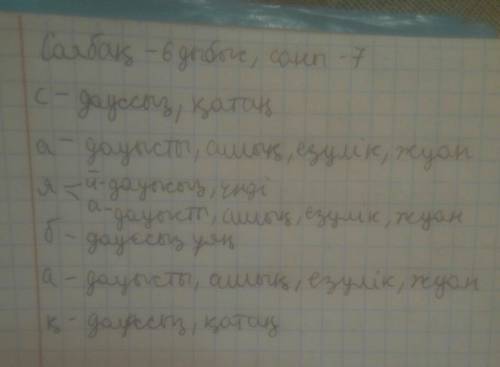 Саябақ - 6 дыбыс, саны - 7
с - дауссыз, қатаң
а - дауысты, ашық, езулік, жуан
я < й - дауысыз, үнді
а - дауысты, ашық, езулік, жуан
б - дауссыз ұяң
а - дауысты, ашық, езулік, жуан
қ - дауссыз, қатаң